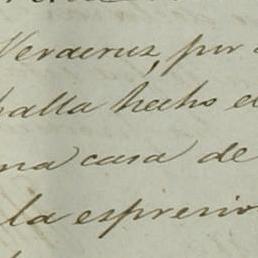 Veracruz, por
halla hecho e
na casa de
la espresio